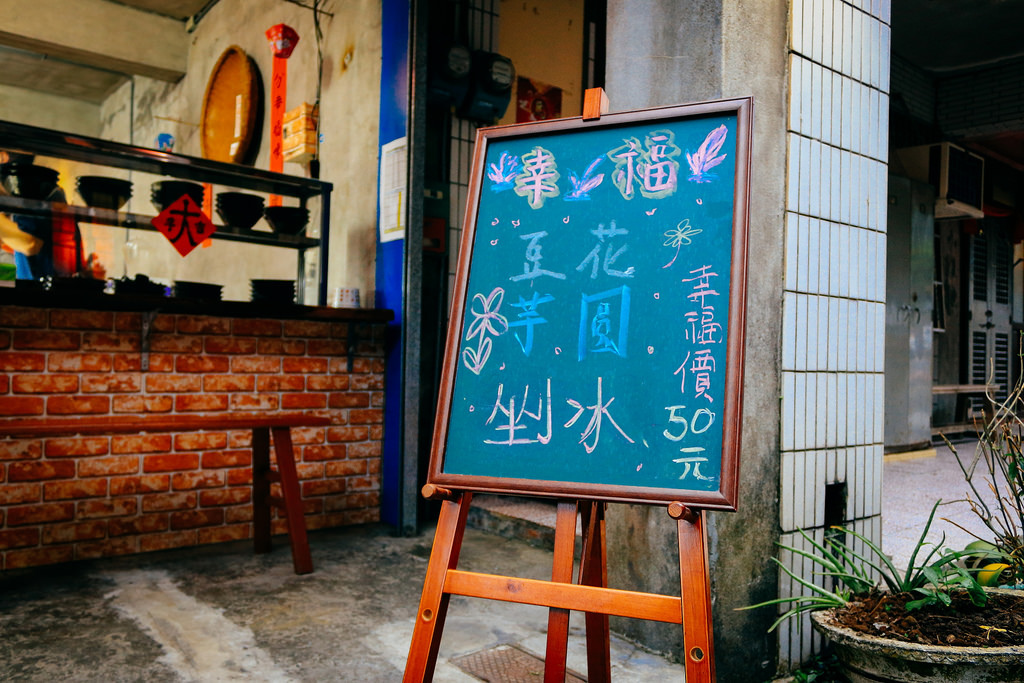 幸福
豆花
芋圓
剉冰
幸福價
50
元